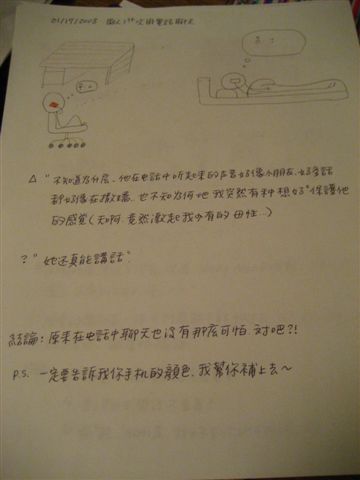 01/19/2008 電話聊天
△ "不知道為什麼, 他在電話中听起來的声音好像小朋友, 好多話
都好像在撒嬌. 也不知為何吧 我突然有种想好好保護他
的感覺(天啊, 竟然激起我少有的母性...)
? "她还真能講話"
結論: 原來在电話中聊天也沒有那麼可怕, 对吧?!
p.s. 一定要告訴我你手机的顏色, 我幫你補上去~